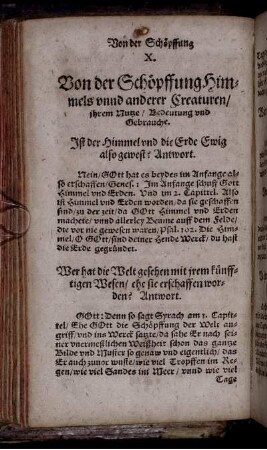 Von der Schöpffung
X.
Von der Schöpffung Him-
mels vnnd anderer Creaturen/
jhrem Nutze/ Bedeutung vnd
Gebrauche.
Ist der Himmel vnd die Erde Ewig
also gewest? Antwort.
Nein/ GOtt hat es beydes im Anfange al-
so erschaffen/ Genes. 1 Im Anfange schuff Gott
Himmel vnd Erden. Vnd im 2. Capittel. Also
ist Himmel vnd Erden worden/ da sie geschaffen
sind/ zu der zeit/ da GOtt Himmel vnd Erden
machete/ vnnd allerley Beume auff dem Felde/
die vor nie gewesen waren/ Psal. 102. Die Him-
mel/ O GOtt/ sind deiner Hende Werck/ du hast
die Erde gegründet.
Wer hat die Welt gesehen mit jrem künff-
tigen Wesen/ ehe sie erschaffen wor-
den? Antwort.
GOtt: Denn so sagt Syrach am 1. Capit-
tel/ Ehe GOtt die Schöpffung der Welt an-
griff/ vnd ins Werck satzte/ da sahe Er nach sei-
ner vnermeßlichen Weißheit schon das gantze
Bilde vnd Muster so genaw vnd eigentlich/ das
Er auch zuuor wuste/ wie viel Tropffen im Re-
gen/ wie viel Sandes im Meer/ vnnd wie viel
Tage